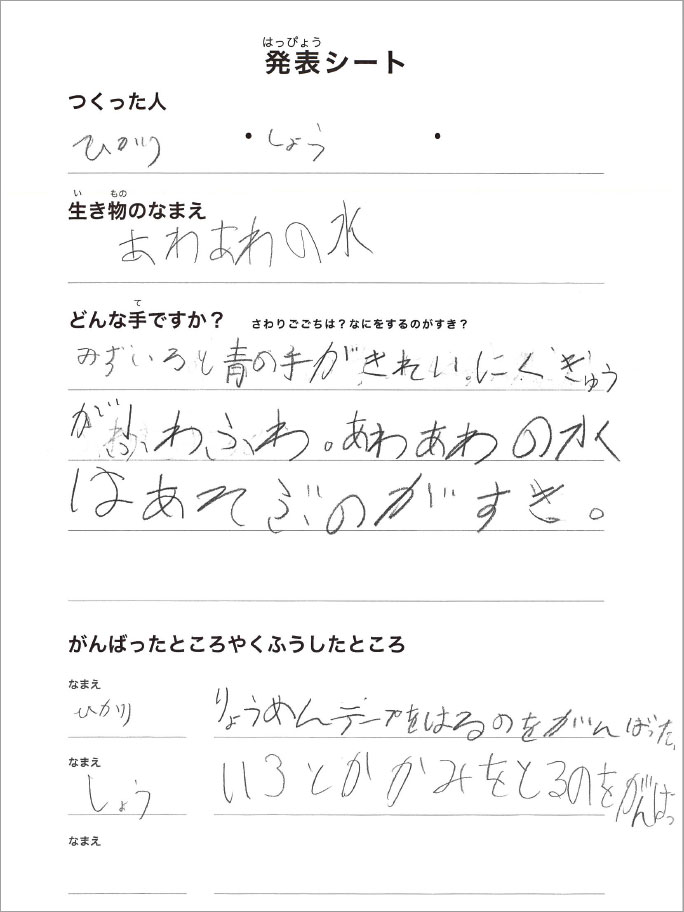 はっぴょう
発表シート
つくった人
ひかり ・ しょう ・
い もの
生き物のなまえ
あわあわの水
て
どんな手ですか？ さわりごごちは？なにをするのがすき？
みずいろと青の手がきれい。にくぎゅう
がふわふわ。あわあわの水
はあそぶのがすき。
がんばったところやくふうしたところ
なまえ
ひかり りょうめんテープをはるのをがんばった。
なまえ
しょう いろとかかみをとるのをがんばっ
なまえ